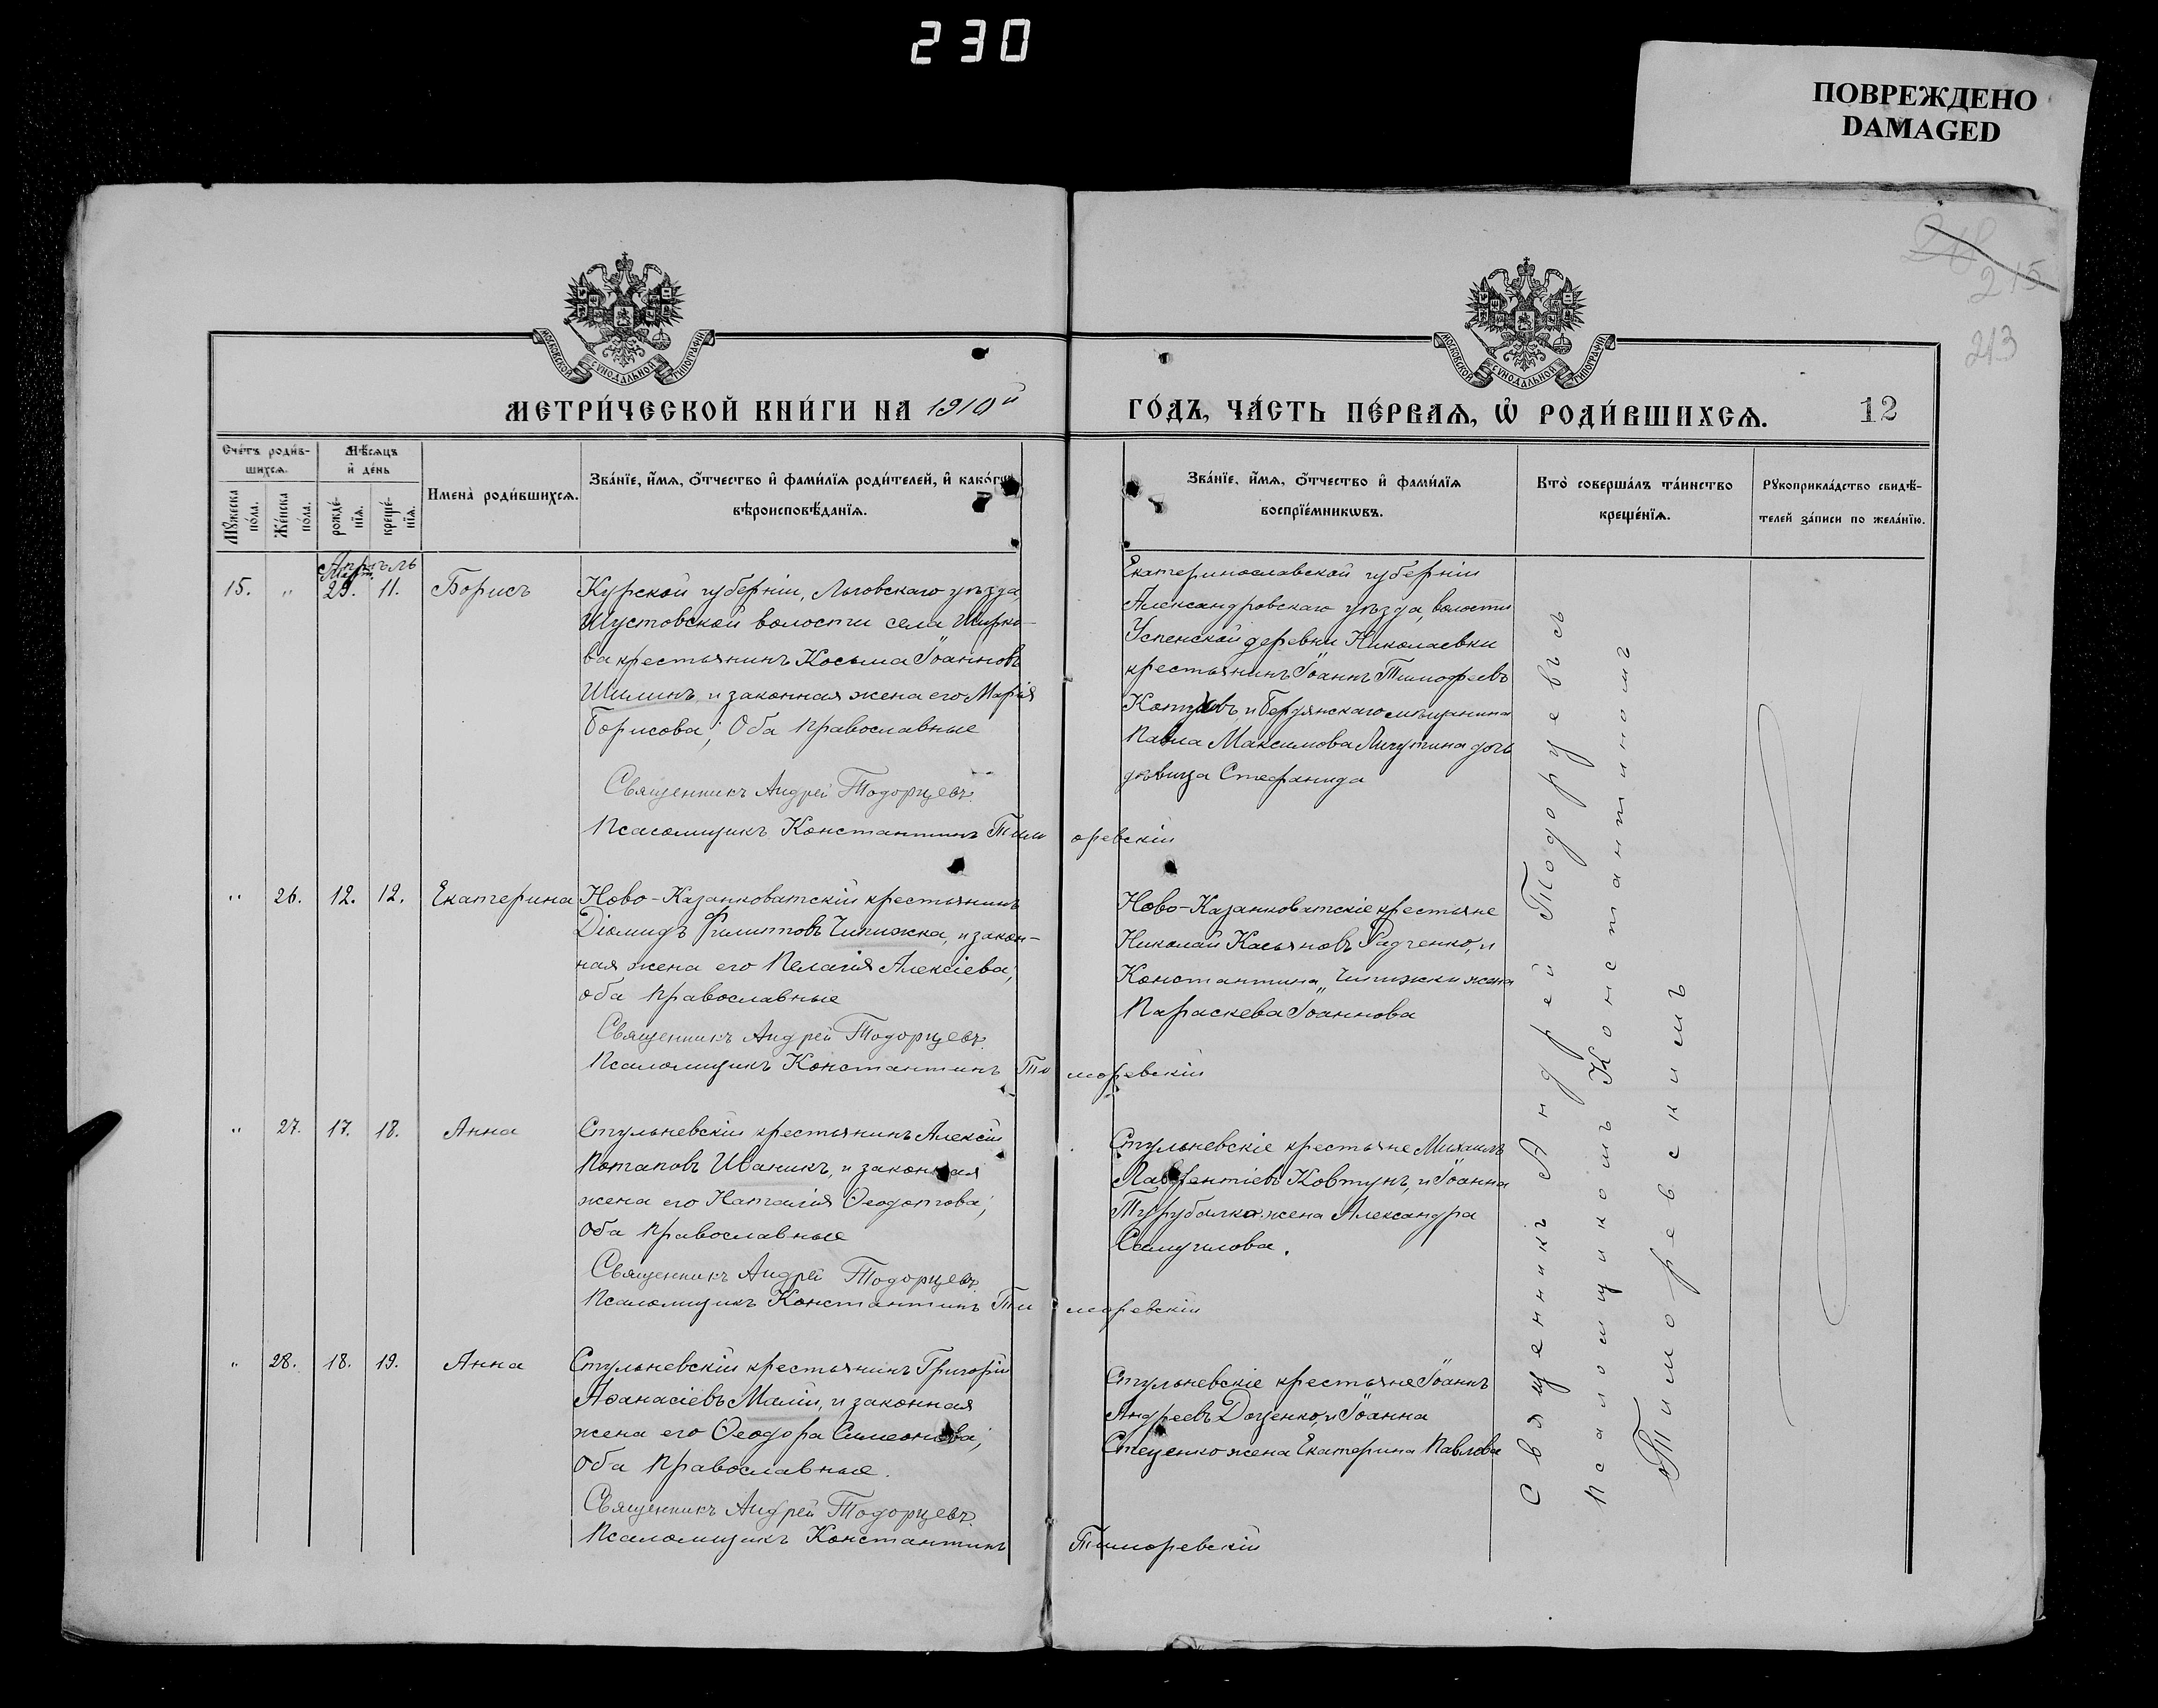 230
ПОВРЕЖДЕНО
DAMAGED
248
215
213
МОСКОВСКОЙ СѴНОДАЛЬНОЙ ТИПОГРАФІИ
МОСКОВСКОЙ СѴНОДАЛЬНОЙ ТИПОГРАФІИ
МЕТРИ́ЧЕСКОЙ КНИ́ГИ НА 1910й
ГО́ДЪ, ЧА́СТЬ ПЕ́РВАѦ, Ѽ РОДИ́ВШИХСѦ.
12
Сче́тъ роди́в-
шихсѧ.
Мꙋ́жеска по́ла.
Же́нска по́ла.
Мѣ́сѧцъ
и҆ де́нь
рожде́-
нїѧ.
креще́-
нїѧ.
Имена̀ роди́вшихсѧ.
Зва́нїе, и҆́мѧ, ѻ҆́тчество и҆ фами́лїѧ роди́телей, и҆ како́гѡ
вѣроисповѣ́данїѧ.
Зва́нїе, и҆́мѧ, ѻ҆́тчество и҆ фами́лїѧ
воспрїе́мникѡвъ.
Кто̀ соверша́лъ та́инство
креще́нїѧ.
Рꙋкоприкла́дство свидѣ́-
телей за́писи по жела́нїю.
Апрѣль
Март.
15. " 29. 11. Борисъ
Курской губерніи, Льговскаго уѣзда,
Шустовской волости села Ширко-
ва крестьянинъ Косьма Іоанновъ
Шилинъ, и законная жена его Марія
Борисова; Оба православные
Священникъ Андрей Тодорцевъ.
Псаломщикъ Константинъ Тиморевскій
Екатеринославской губерніи
Александровскаго уѣзда, волости
Успенской деревни Николаевки
крестьянинъ Іоаннъ Тимофеевъ
и Бердянскаго мѣщанина
Павла Максимова Личутина дочь
дѣвица Стефанида
" 26. 12. 12. Екатерина
Ново-Казанковатскій крестьянинъ
Діомидъ Филипповъ Чипижка, и закон-
ная жена его Пелагія Алексіева;
оба православные
Священникъ Андрей Тодорцевъ.
Псаломщикъ Константинъ Тиморевскій
Ново-Казанковатскіе крестьяне
Николай Касьяновъ Радченко, и
Константина „ Чипижки жена
Параскева Іоаннова
" 27. 17. 18. Анна
Стульневскій крестьянинъ Алексій
Потаповъ Иваникъ, и законная
жена его Наталія Ѳеодотова;
Оба православные
Священникъ Андрей Тодорцевъ.
Псаломщикъ Константинъ Тиморевскій
Стульневскіе крестьяне Михаилъ
Лаврентіевъ Ковтунъ, и Іоанна
Турубалко жена Александра
Самуилова.
" 28. 18. 19. Анна
Стульневскій крестьянинъ Григорій
Аѳанасіевъ Малій, и законная
жена его Ѳеодора Симеонова;
Оба православные.
Священникъ Андрей Тодорцевъ.
Псаломщикъ Константинъ Тиморевскій
Стульневскіе крестьяне Іоаннъ
Андреевъ Доценко, и Іоанна
Стеценко жена Екатерина Павлова
Священникъ Андрей Тодоруевъ съ
Псаломщикомъ Константиномъ
Тиморевскимъ